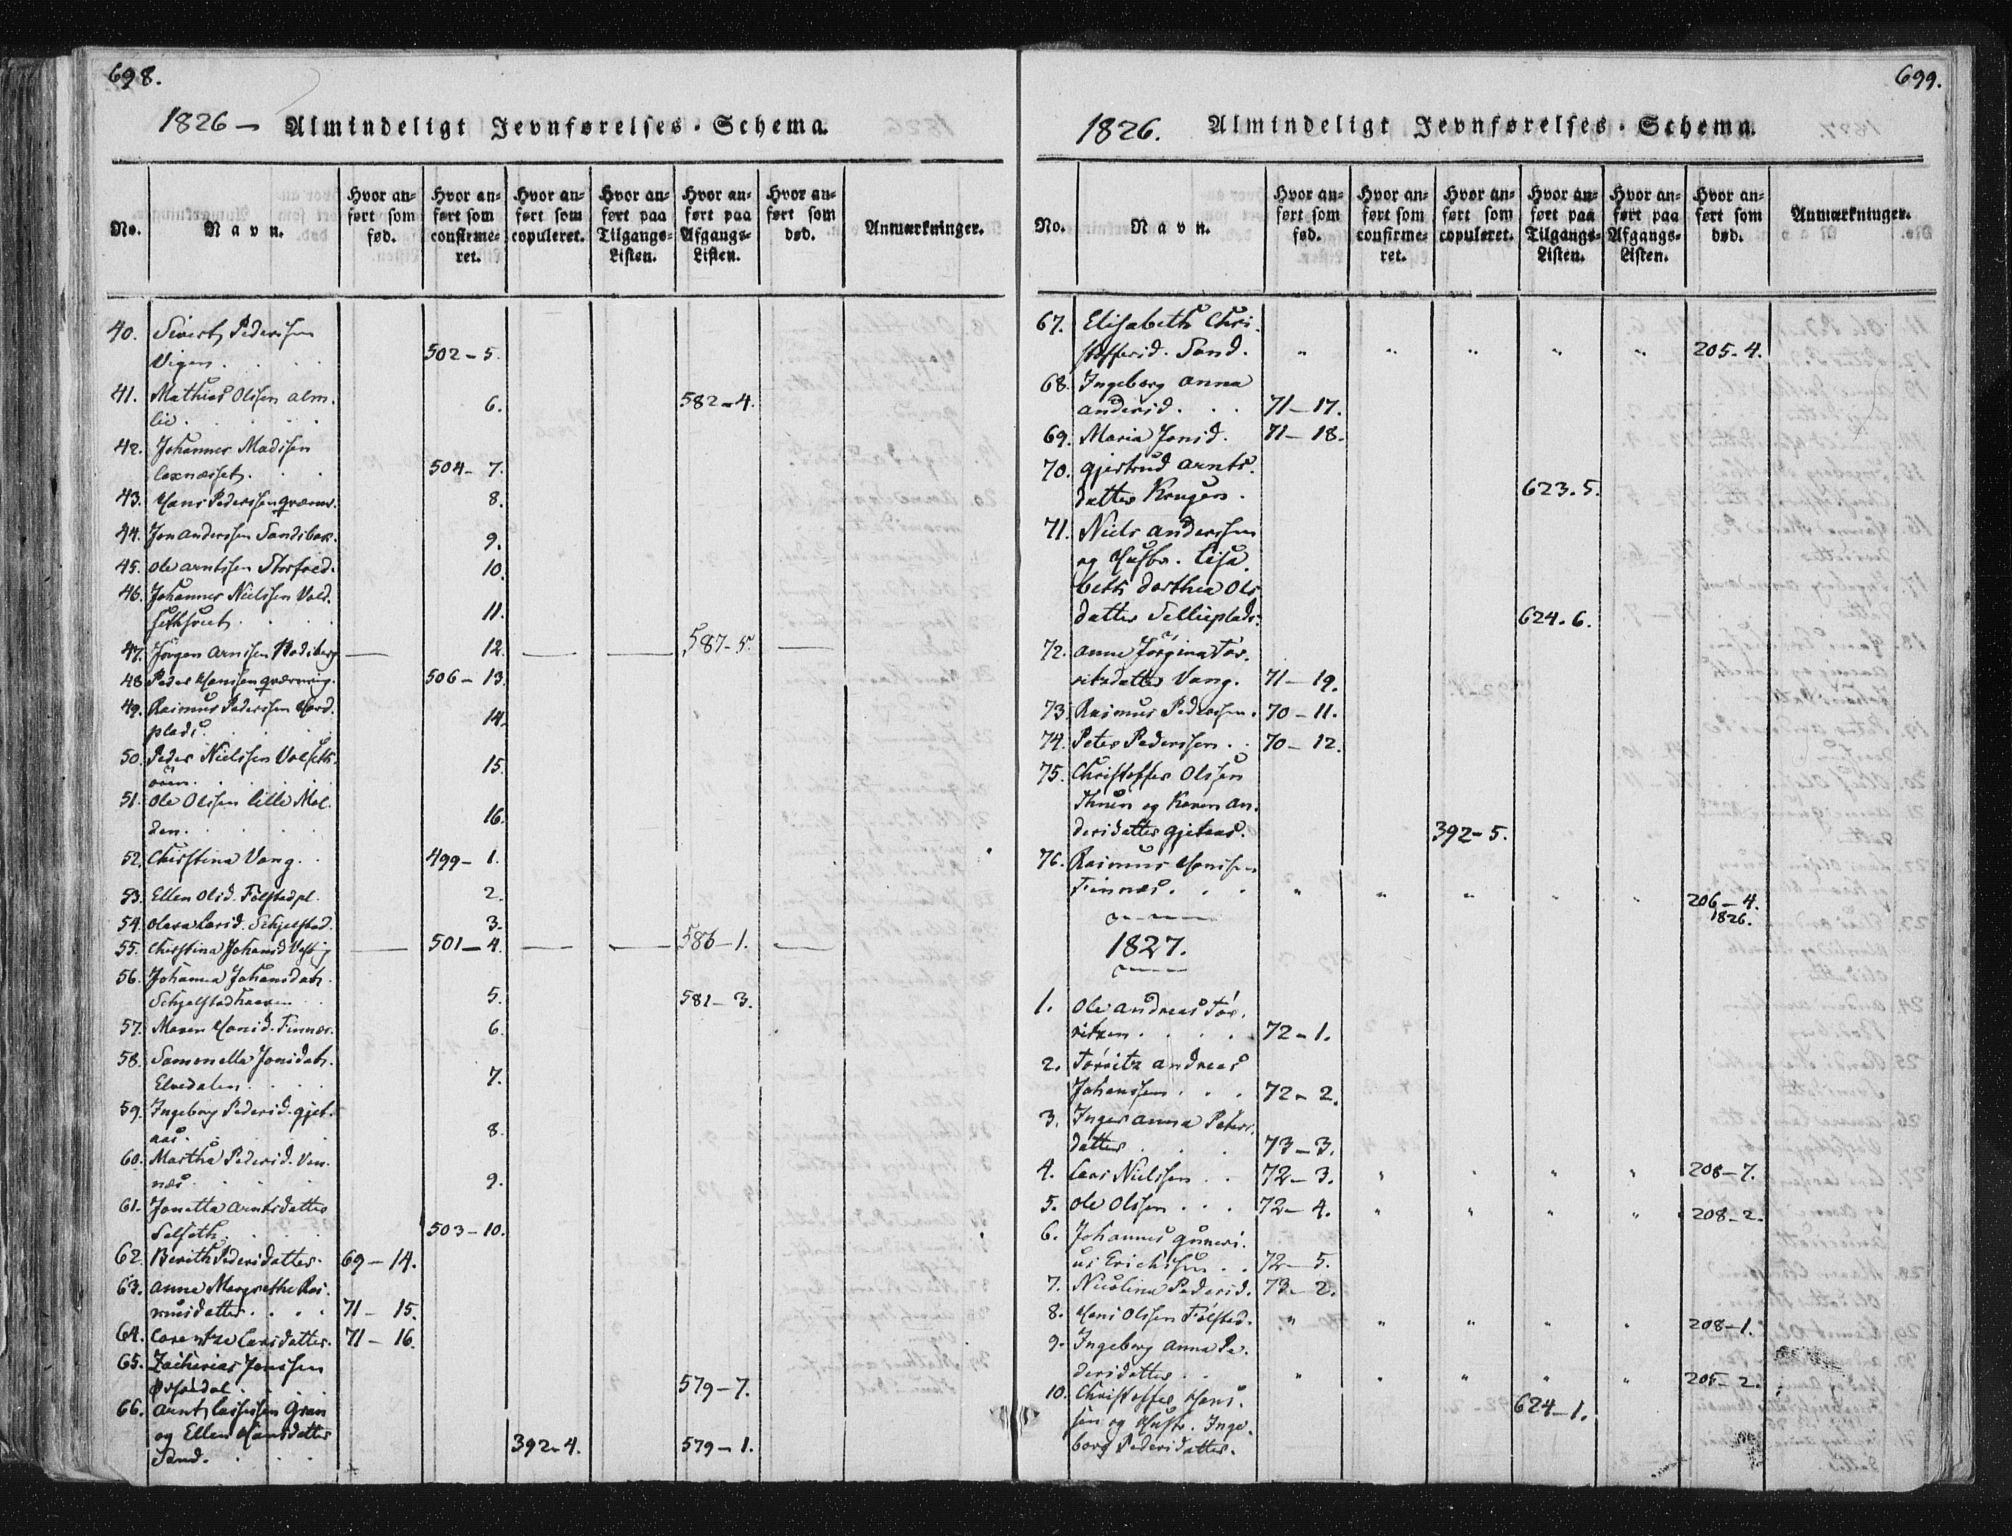 698.
1826 — Almindeligt Jevnførelses-Schema.
No.
Navn.
Hvor anført som fød.
Hvor anført som confirmeret.
Hvor anført som copuleret.
Hvor anført paa Tilgangs-Listen.
Hvor anført paa Afgangs-Listen.
Hvor anført som død.
Anmærkninger.
40. Sivert Pedersen
Vigen. 502-5.
41. Mathias Olsen alm-
lie. 6. 582-4.
42. Johannes Madsen
Loxnæsset. 504-7.
43. Hans Pederssen qværnv. 8.
44. Jon anderssen Sandsbak. 9.
45. Ole arntssen Storfoed. 10.
46. Johannes Nielssen Vold-
11.
47. Jørgen arnssen 12. 587-5.
48. Peder Hanssen qværnvig. 506-13.
49. Rasmus Pederssen Nord-
plads. 14.
50. Peder Nielssen
15.
51. Ole Olssen lille Mol-
den. 16.
52. Christina Vang. 499-1.
53. Ellen Olsd. Følstadpl. 2.
54. Olava Larsd. Schjelstad. 3.
55. Christina Johansd. 501-4. 586-1.
56. Johanna Johansdatr.
Schjelstadhaven 5. 581-3.
57. Maren Hansd. Finnæs. 6.
58. Samonella Jonsdatr.
Elvedalen. 7.
59. Ingeborg Pedersd. gjet-
aas. 8.
60. Martha Pedersd. Ven-
næs. 9.
61. Jonetta arntsdatter
Selseth. 503-10.
62. Berith Pedersdatter. 69-14.
63. anna Margrethe Ras-
musdatter. 71-15.
64. Lorentze Larsdatter. 71-16.
65. Zacharias Jonssen
579-7.
66. arnt Larssen Gran
og Ellen Hansdatter
Sand. 392-4. 579-1.
699.
1826. Almindeligt Jevnførelses-Schema.
No.
Navn.
Hvor anført som fød.
Hvor anført som confirmeret.
Hvor anført som copuleret.
Hvor anført paa Tilgangs-Listen.
Hvor anført paa Afgangs-Listen.
Hvor anført som død.
Anmærkninger.
67. Elisabeth Chri-
stoffersd. Sand. " " " " " 205-4.
68. Ingeborg anna
andersd. 71-17.
69. Maria Jonsd. 71-18.
70. gjertrud arnts-
datter Krogen. 623.5.
71. Niels anderssen
og Hustr. Elisa-
beth dorthea Ols-
datter Sellieplads. 624.6.
72. anne Jørgina Tør-
ritzdatter Vang. 71-19.
73. Rasmus Pederssen. 70-11.
74. Peter Pederssen. 70-12.
75. Christoffer Olssen
og Karen an-
dersdatter gjetaas. 392-5.
76. Rasmus Hanssen
Finnæs. " " " " " 206-4.
1826.
1827.
1. Ole andreas Tør-
ritzen. 72-1.
2. Tørritz andreas
Johanssen. 72-2.
3. Inger anna Peters-
datter 73-3.
4. Lars Nielssen. 72-3. " " " " 208-7.
5. Ole Olssen. 72-4. " " " " 208-2.
6. Johannes guneri-
us Erichssen. 72-5.
7. Nicolina Pedersd. 73-2.
8. Hans Olssen Følstad. " " " " " 208-1.
9. Ingeborg anna Pe-
dersdatter. " " " " " 205-2.
10. Christoffer Hans-
sen og Hustr. Inge-
borg Pedersdatter. 624-1.